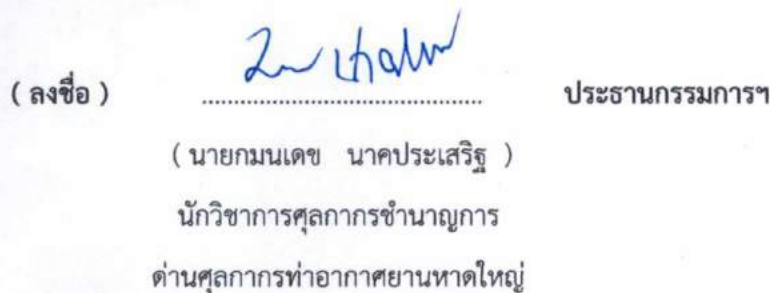 ( ลงชื่อ ) ........................................ ประธานกรรมการฯ
( นายกมนเดข นาคประเสริฐ )
นักวิชาการศุลกากรชำนาญการ
ด่านศุลกากรท่าอากาศยานหาดใหญ่